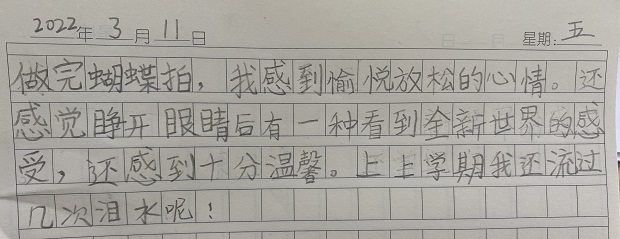 2022年3月11日 星期:五
做完蝴蝶拍，我感到愉悦放松的心情。还
感觉睁开眼睛后有一种看到全新世界的感
受，还感到十分温馨。上上学期我还流过
几次泪水呢！